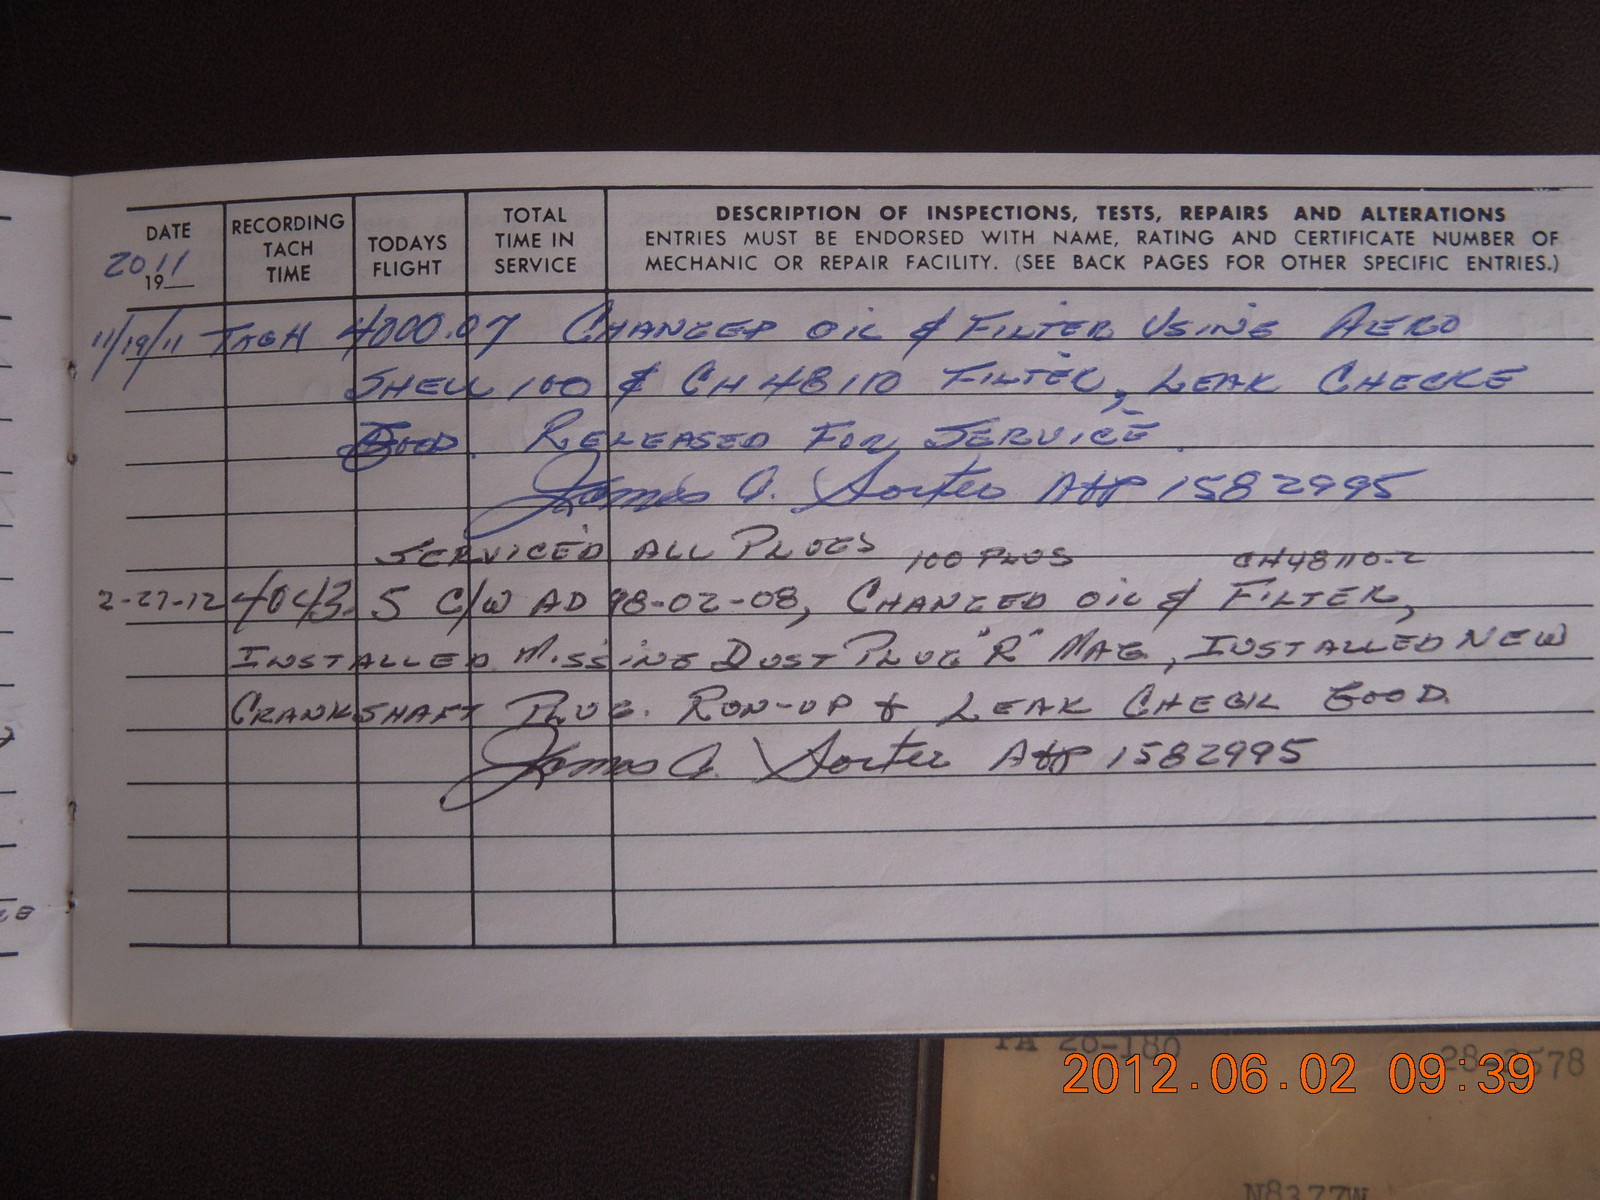 DATE
2011
19__
RECORDING
TACH
TIME
TODAYS
FLIGHT
TOTAL
TIME IN
SERVICE
DESCRIPTION OF INSPECTIONS, TESTS, REPAIRS AND ALTERATIONS
ENTRIES MUST BE ENDORSED WITH NAME, RATING AND CERTIFICATE NUMBER OF
MECHANIC OR REPAIR FACILITY. (SEE BACK PAGES FOR OTHER SPECIFIC ENTRIES.)
11/19/11 TACH 4000.07 CHANGED OIL & FILTER USING AERO
SHELL 100 & CH48110 FILTER, LEAK CHECKE
GOOD. RELEASED FOR SERVICE.
James A. Sorter A&P 1582995
SERVICED ALL PLUGS 100 PLUS CH48110-2
2-27-12 4043.5 C/W AD 98-02-08, CHANGED OIL & FILTER,
INSTALLED MISSING DUST PLUG "R" MAG, INSTALLED NEW
CRANKSHAFT PLUG. RUN-UP & LEAK CHECK GOOD.
James A. Sorter A&P 1582995
PA 28-180
N8377W
2012.06.02 09:39